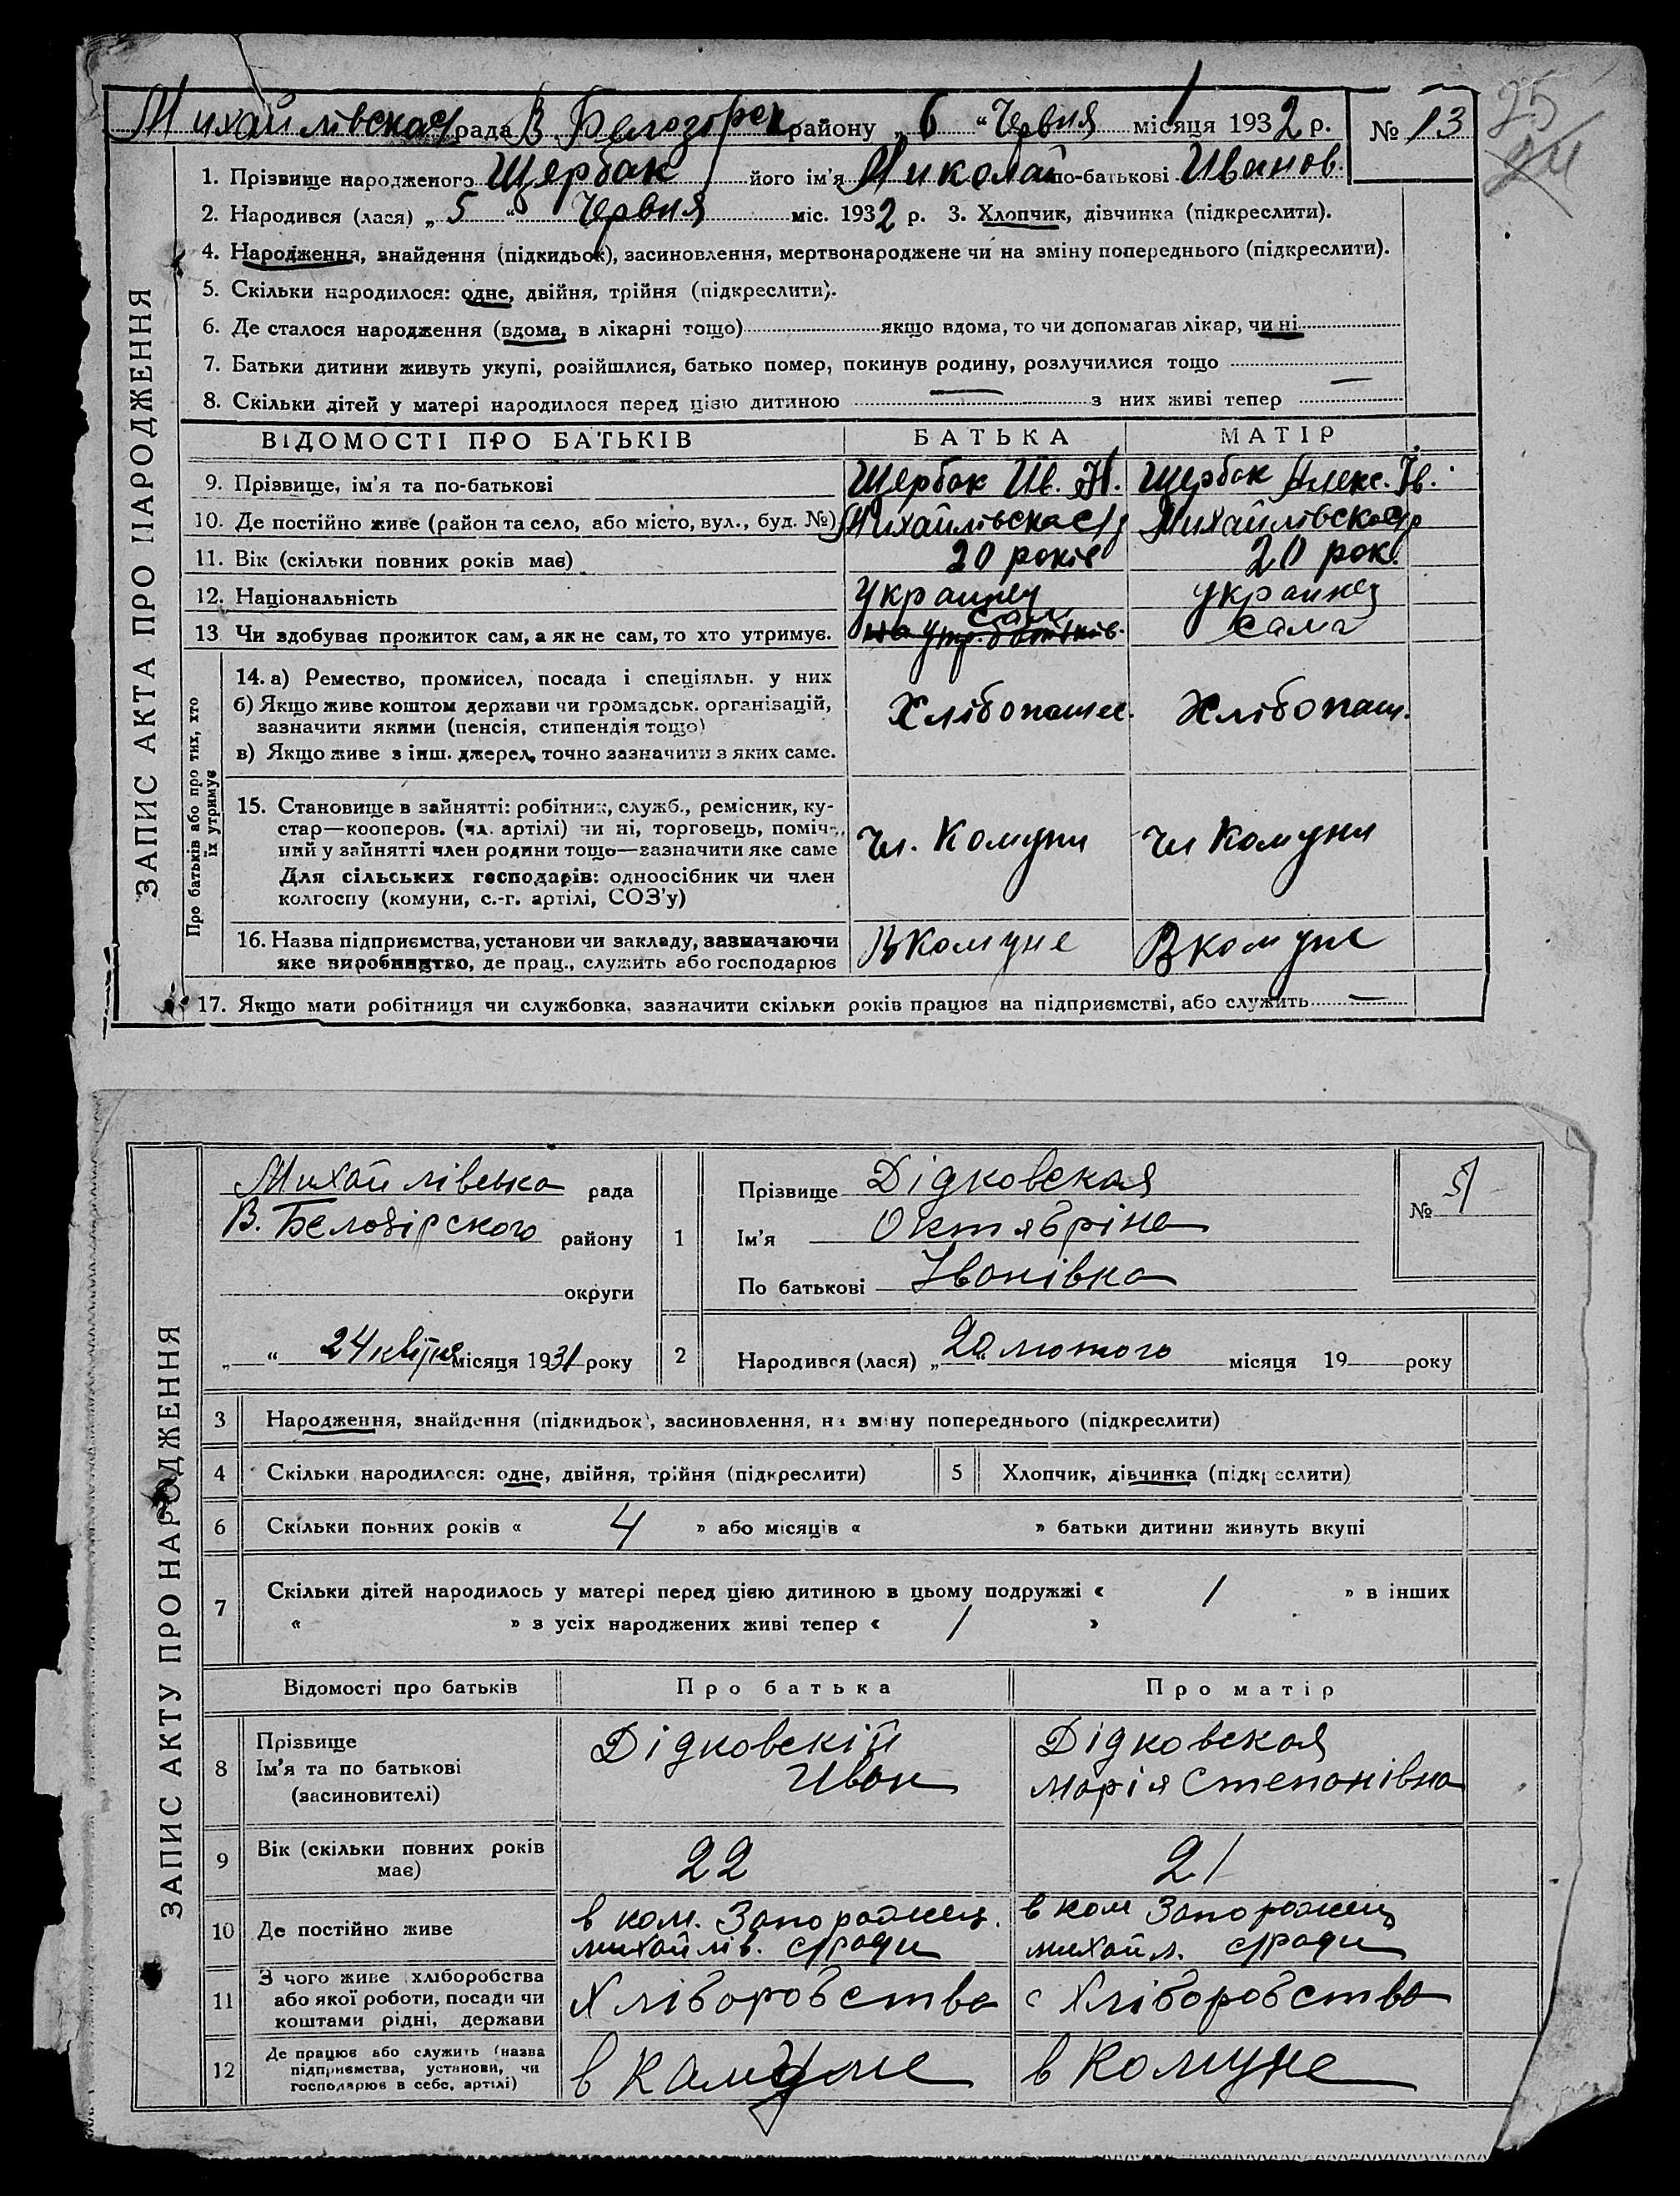 25
24
Михайлівская рада В. Белозорск району „ 6 “ Червня місяця 1932 р. № 13
ЗАПИС АКТА ПРО НАРОДЖЕННЯ
1. Прізвище народженого Щербак його ім'я Николай по-батькові Иванов.
2. Народився (лася) „ 5 “ Червня міс. 1932 р. 3. Хлопчик, дівчинка (підкреслити).
4. Народження, знайдення (підкидьок), засиновлення, мертвонароджене чи на зміну попереднього (підкреслити).
5. Скільки народилося: одне, двійня, трійня (підкреслити).
6. Де сталося народження (вдома, в лікарні тощо) якщо вдома, то чи допомагав лікар, чи ні
7. Батьки дитини живуть укупі, розійшлися, батько помер, покинув родину, розлучилися тощо —
8. Скільки дітей у матері народилося перед цією дитиною — з них живі тепер
ВІДОМОСТІ ПРО БАТЬКІВ БАТЬКА МАТІР
9. Прізвище, ім'я та по-батькові Щербак Ив. Н. Щербак Алекс. Ів.
10. Де постійно живе (район та село, або місто, вул., буд. №) Михайлівска с/р Михайлівска с/р
11. Вік (скільки повних років має) 20 років 20 рок.
12. Національність Украинец украинец
13. Чи здобуває прожиток сам, а як не сам, то хто утримує. на утр. батьків. сам сама
Про батьків або про тих, хто їх утримує
14. а) Ремество, промисел, посада і спеціяльн. у них
б) Якщо живе коштом держави чи громадськ. організацій,
зазначити якими (пенсія, стипендія тощо) Хлібопашец. Хлібопаш.
в) Якщо живе з інш. джерел, точно зазначити з яких саме.
15. Становище в зайнятті: робітник, служб., ремісник, ку-
стар—кооперов. (чл. артілі) чи ні, торговець, поміч-
ний у зайнятті член родини тощо—зазначити яке саме Чл. Комуни Чл Комуни
Для сільських господарів: одноосібник чи член
колгоспу (комуни, с.-г. артілі, СОЗ'у)
16. Назва підприємства, установи чи закладу, зазначаючи В Комуне В комуне
яке виробництво, де прац., служить або господарює
17. Якщо мати робітниця чи службовка, зазначити скільки років працює на підприємстві, або служить —
ЗАПИС АКТУ ПРО НАРОДЖЕННЯ
Михайлівська рада
В. Белозірского району
округи
„ “ 24 квітня місяця 1931 року
1 Прізвище Дідковская
Ім'я Октябріна
По батькові Іванівна
№ 51
2 Народився (лася) „ 20 “ лютого місяця 19 року
3 Народження, знайдення (підкидьок), засиновлення, на зміну попереднього (підкреслити)
4 Скільки народилося: одне, двійня, трійня (підкреслити) 5 Хлопчик, дівчинка (підкреслити)
6 Скільки повних років « 4 » або місяців « » батьки дитини живуть вкупі
7 Скільки дітей народилось у матері перед цією дитиною в цьому подружжі « 1 » в інших
« » з усіх народжених живі тепер « 1 »
Відомості про батьків Про батька Про матір
8 Прізвище Дідковскій Дідковская
Ім'я та по батькові Иван Марія Степанівна
(засиновителі)
9 Вік (скільки повних років має) 22 21
10 Де постійно живе в ком. Запорожец. в ком Запорожец
михайлів. с/ради михайл. с/ради
11 З чого живе (хліборобства
або якої роботи, посади чи Хліборобства с Хліборобства
коштами рідні, держави
12 Де працює або служить (назва
підприємства, установи, чи в Комуне в Комуне
господарює в себе, артілі)